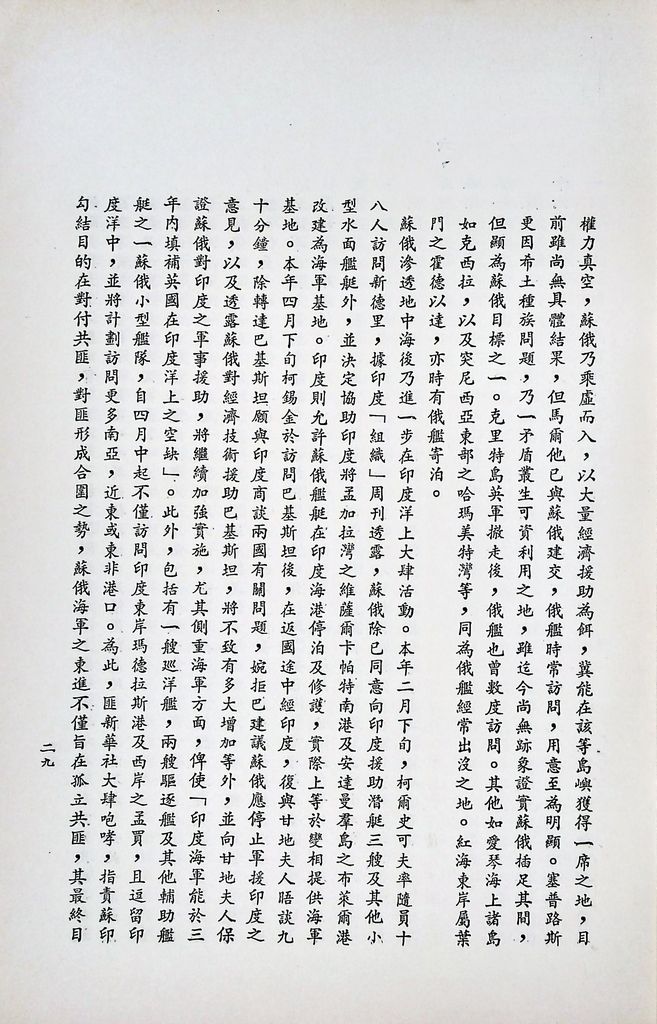 權力真空，蘇俄乃乘虛而入，以大量經濟援助為餌，冀能在該等島嶼獲得一席之地，目
前雖尚無具體結果，但馬爾他已與蘇俄建交，俄艦時常訪問，用意至為明顯。塞普路斯
更因希土種族問題，乃一矛盾叢生可資利用之地，雖迄今尚無跡象證實蘇俄插足其間，
但顯為蘇俄目標之一。克里特島英軍撤走後，俄艦也曾數度訪問。其他如愛琴海上諸島
如克西拉，以及突尼西亞東部之哈瑪美特灣等，同為俄艦經常出沒之地。紅海東岸屬葉
門之霍德以達，亦時有俄艦寄泊。
蘇俄滲透地中海後乃進一步在印度洋上大肆活動。本年二月下旬，柯爾史可夫率隨員十
八人訪問新德里，據印度「組織」周刊透露，蘇俄除已同意向印度援助潛艇三艘及其他小
型水面艦艇外，並決定協助印度將孟加拉灣之維薩爾卡帕特南港及安達曼羣島之布萊爾港
改建為海軍基地。印度則允許蘇俄艦艇在印度海港停泊及修護，實際上等於變相提供海軍
基地。本年四月下旬柯錫金於訪問巴基斯坦後，在返國途中經印度，復與甘地夫人晤談九
十分鐘，除轉達巴基斯坦願與印度商談兩國有關問題，婉拒巴建議蘇俄應停止軍援印度之
意見，以及透露蘇俄對經濟技術援助巴基斯坦，將不致有多大增加等外，並向甘地夫人保
證蘇俄對印度之軍事援助，將繼續加強實施，尤其側重海軍方面，俾使「印度海軍能於三
年內填補英國在印度洋上之空缺」。此外，包括有一艘巡洋艦，兩艘驅逐艦及其他輔助艦
艇之一蘇俄小型艦隊，自四月中起不僅訪問印度東岸瑪德拉斯港及西岸之孟買，且逗留印
度洋中，並將計劃訪問更多南亞，近東或東非港口。為此，匪新華社大肆咆哮，指責蘇印
勾結目的在對付共匪，對匪形成合圍之勢，蘇俄海軍之東進不僅旨在孤立共匪，其最終目
二九